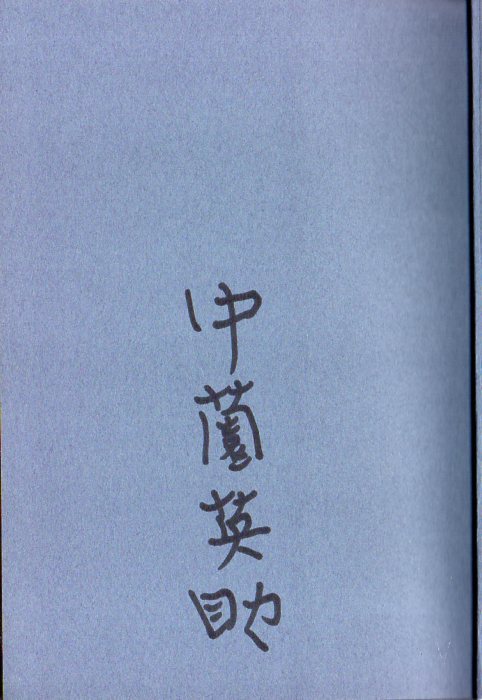 中薗英助